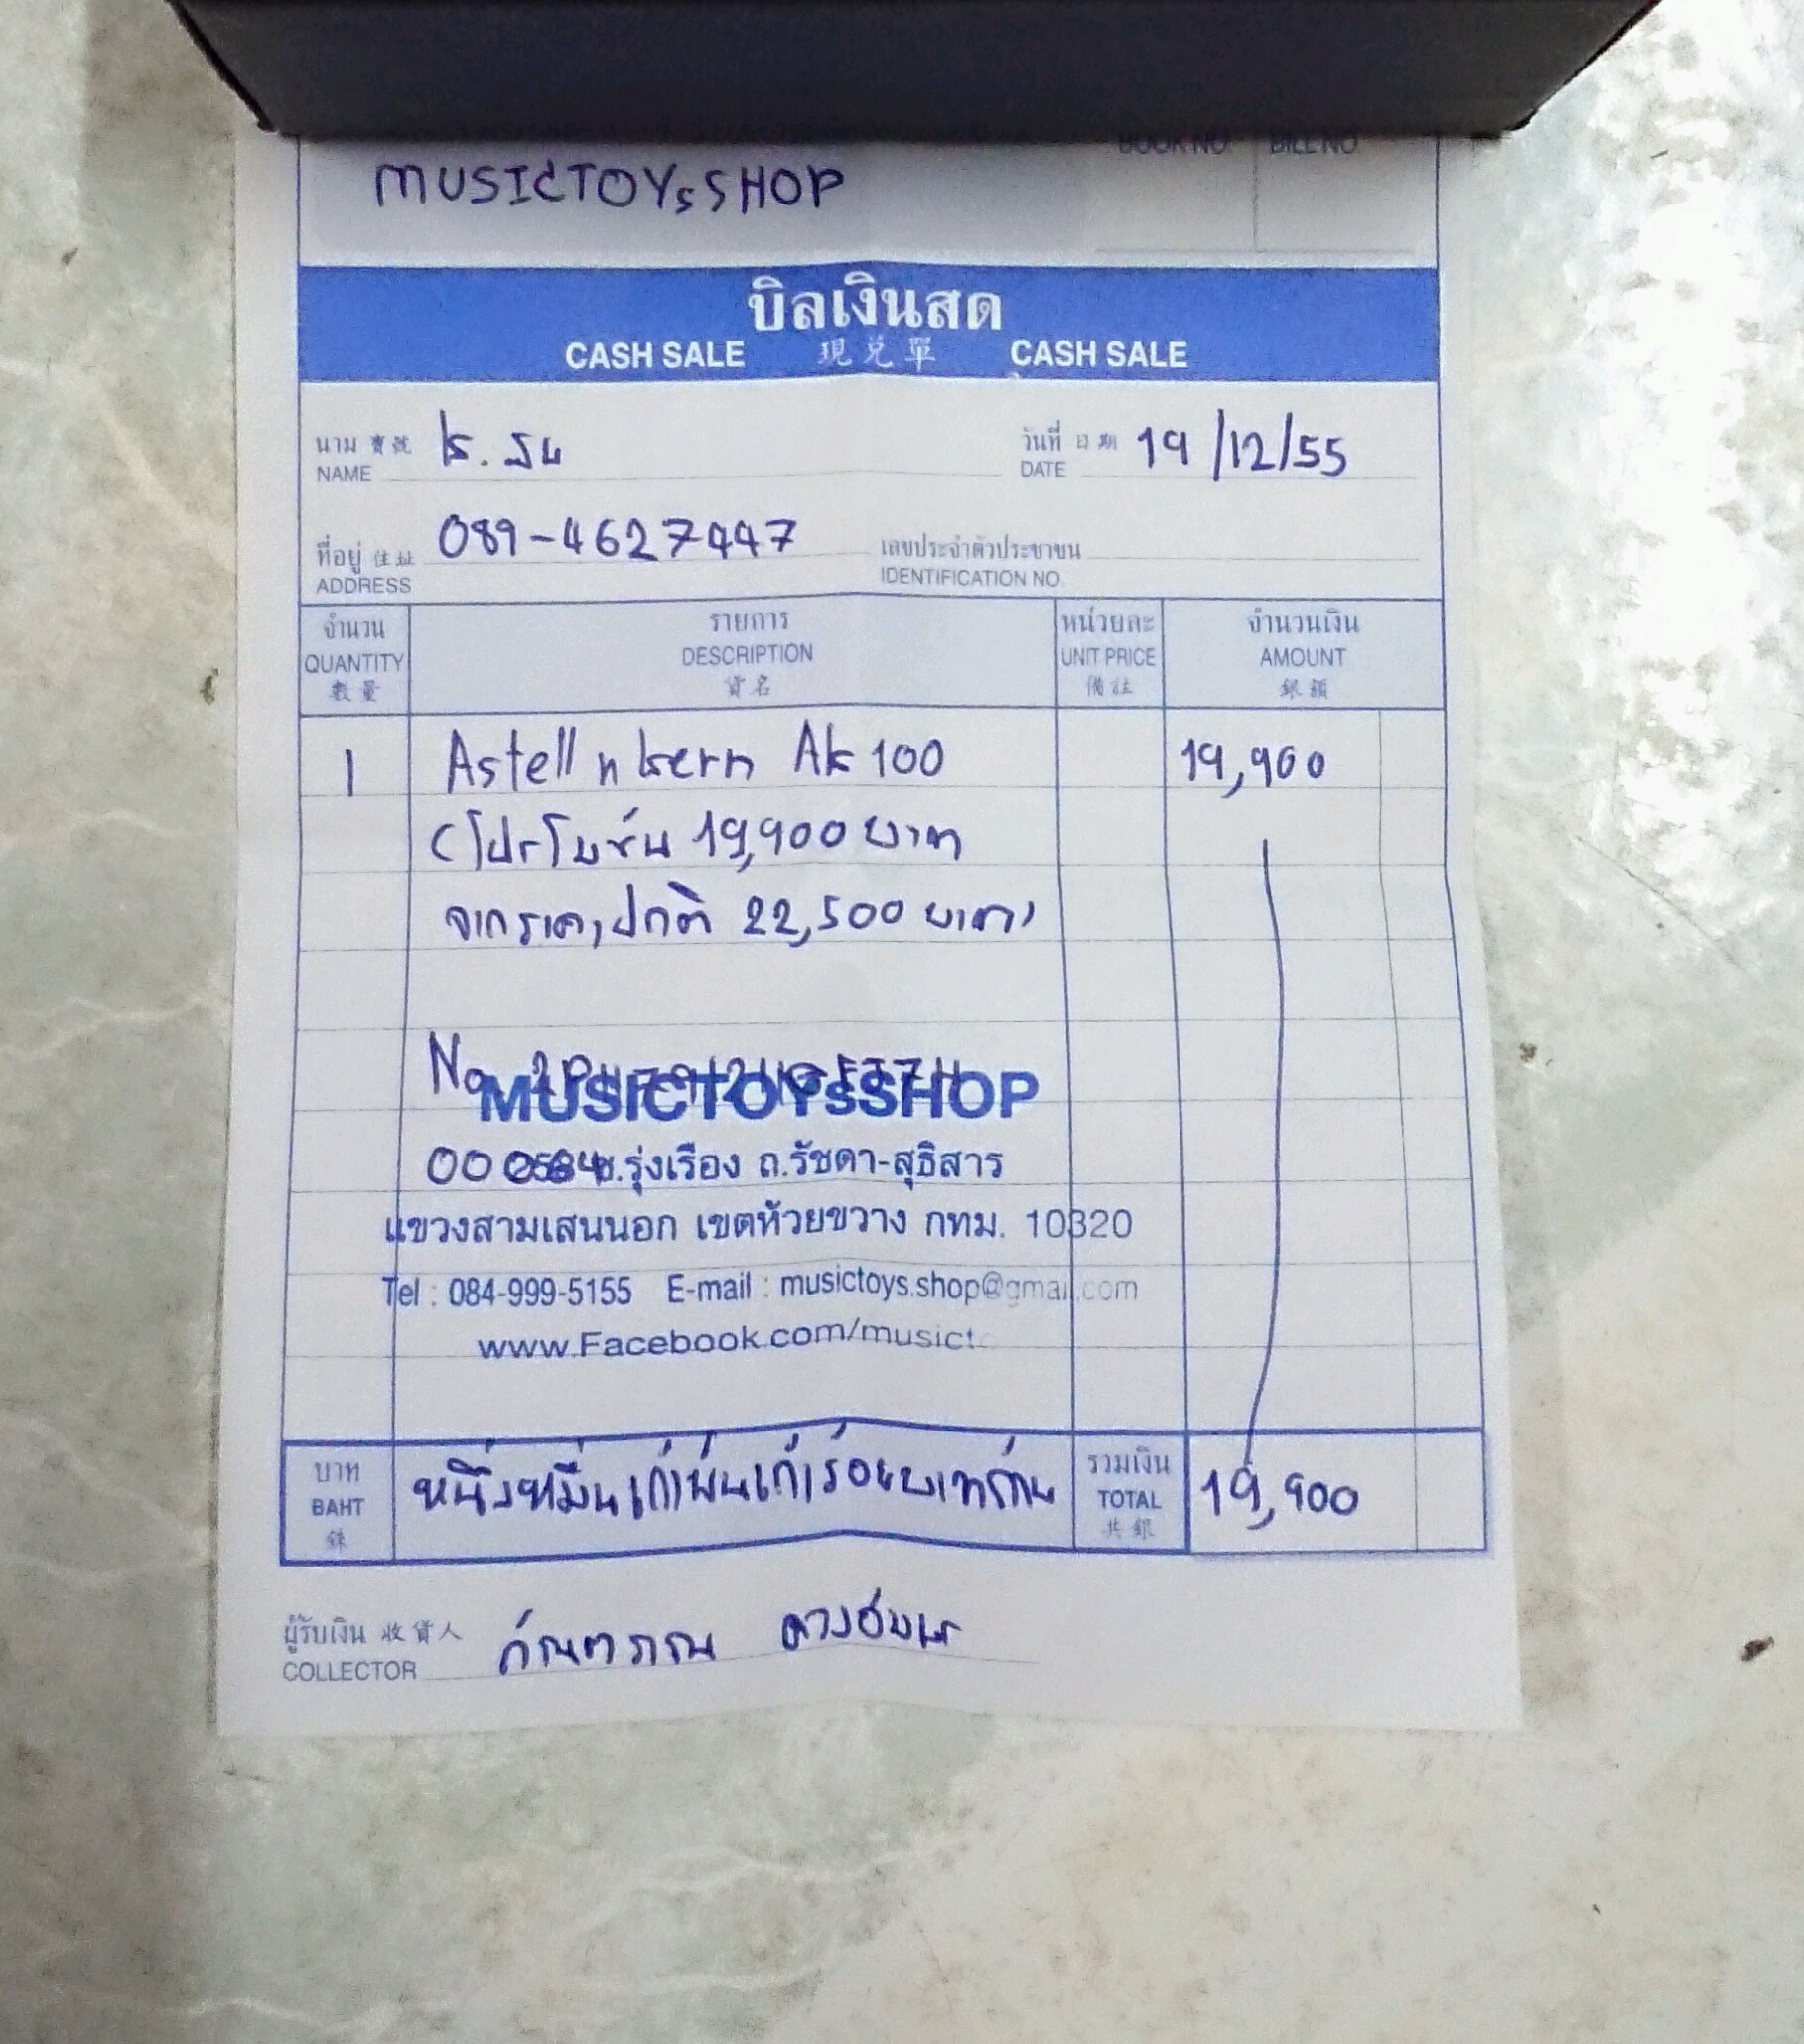 BOOK NO. BILL NO
MUSICTOYsSHOP
บิลเงินสด
CASH SALE 現兌單 CASH SALE
นาม 寶號
NAME
วันที่ 日期 19/12/55
DATE
ที่อยู่ 住址 089-4627447
ADDRESS
เลขประจำตัวประชาชน
IDENTIFICATION NO
จำนวน รายการ หน่วยละ จำนวนเงิน
QUANTITY DESCRIPTION UNIT PRICE AMOUNT
數量 貨名 備註 銀額
1 Astell n kern Ak 100 19,900
(โปรโมชั่น 19,900 บาท
จากราคาปกติ 22,500 บาท)
No
MUSICTOYsSHOP
ซ.รุ่งเรือง ถ.รัชดา-สุธิสาร
แขวงสามเสนนอก เขตห้วยขวาง กทม. 10320
Tel : 084-999-5155 E-mail : musictoys.shop@gmail.com
www.Facebook.com/musict
บาท หนึ่งหมื่นเก้าพันเก้าร้อยบาทถ้วน รวมเงิน 19,900
BAHT TOTAL
銖 共銀
ผู้รับเงิน 收貨人
COLLECTOR